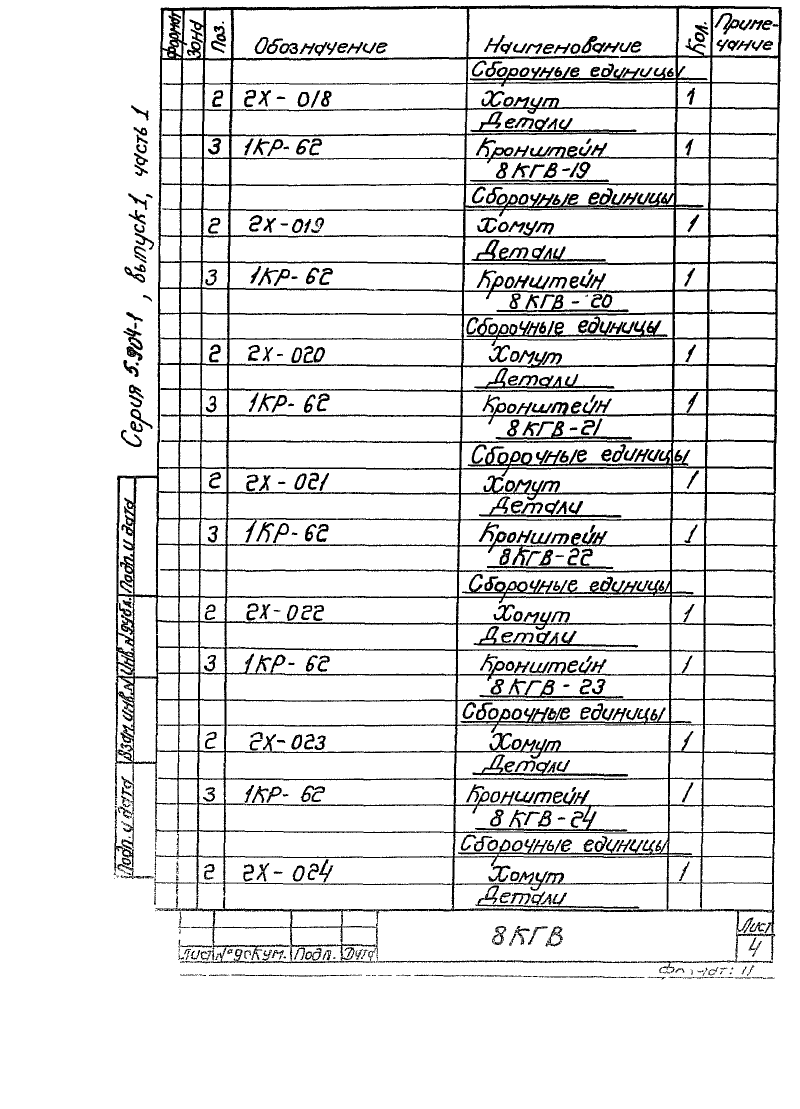 Формат Зона Поз. Обозначение Наименование Кол. Приме-
чание
Сборочные единицы
2 2Х-018 Хомут 1
Детали
3 1КР-62 Кронштейн 1
8КГВ-19
Сборочные единицы
2 2Х-019 Хомут 1
Детали
3 1КР-62 Кронштейн 1
8КГВ-20
Сборочные единицы
2 2Х-020 Хомут 1
Детали
3 1КР-62 Кронштейн 1
8КГВ-21
Сборочные единицы
2 2Х-021 Хомут 1
Детали
3 1КР-62 Кронштейн 1
8КГВ-22
Сборочные единицы
2 2Х-022 Хомут 1
Детали
3 1КР-62 Кронштейн 1
8КГВ-23
Сборочные единицы
2 2Х-023 Хомут 1
Детали
3 1КР-62 Кронштейн 1
8КГВ-24
Сборочные единицы
2 2Х-024 Хомут 1
Детали
Серия 5.904-1, выпуск 1, часть 1
Подп. и дата
Инв.№дубл.
Взам.инв.№
Подп. и дата
Лист №докум. Подп. Дата
8КГВ
Лист
4
Формат: 11